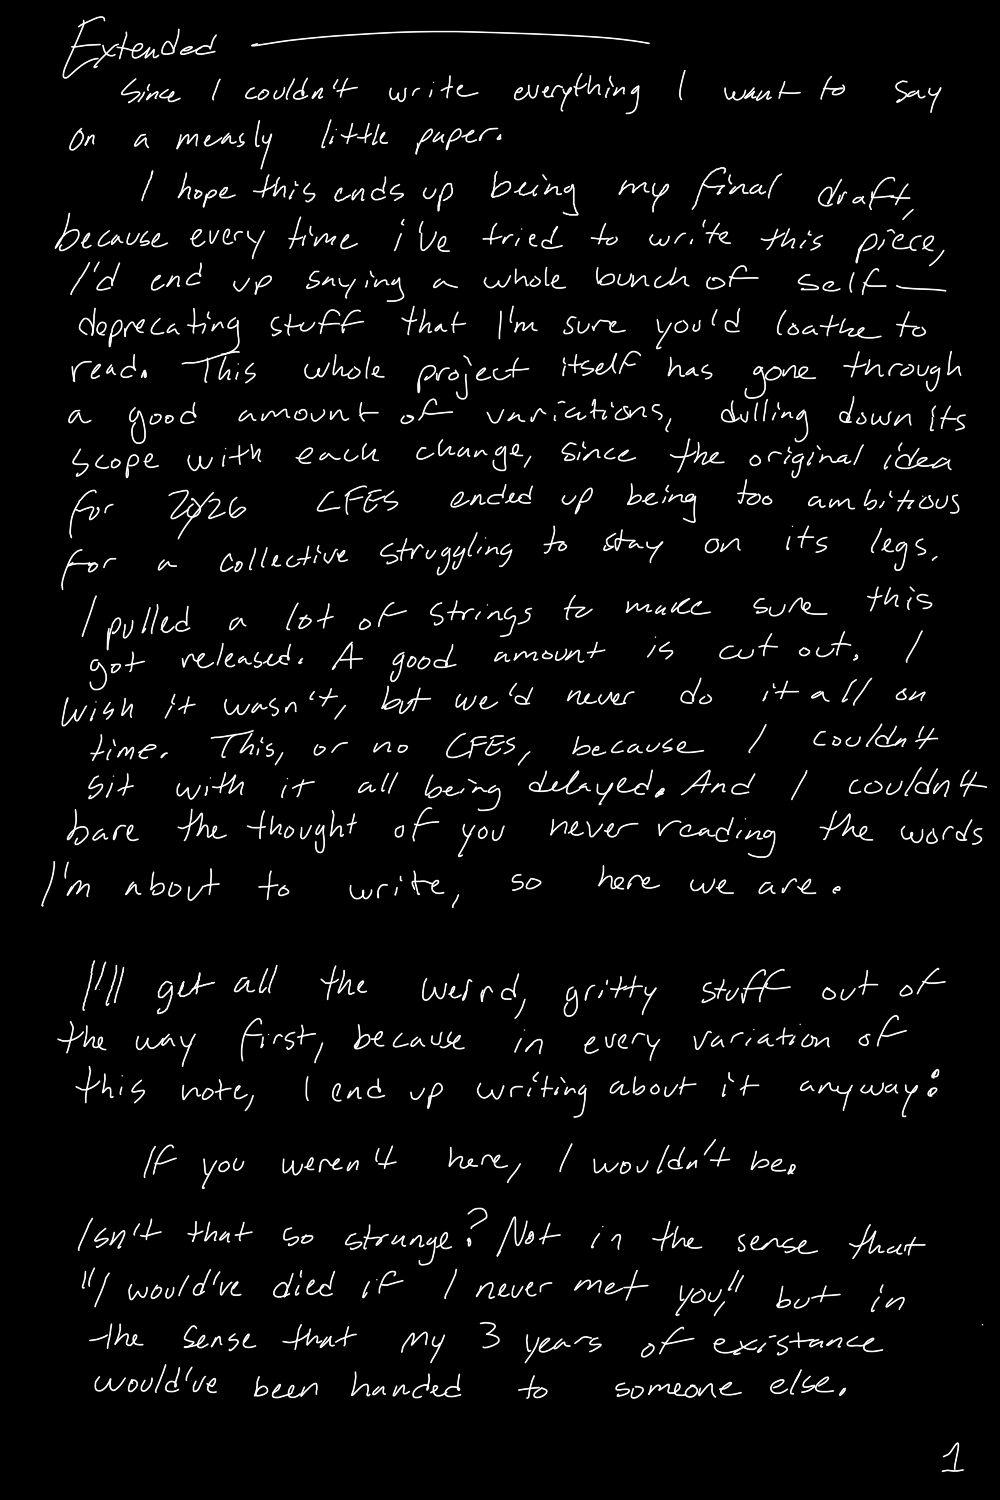 Extended
Since I couldn't write everything I want to say
on a measly little paper.
I hope this ends up being my final draft,
because every time i've tried to write this piece,
I'd end up saying a whole bunch of self-
deprecating stuff that I'm sure you'd loathe to
read. This whole project itself has gone through
a good amount of variations, dulling down its
scope with each change, since the original idea
for 2026 CFES ended up being too ambitious
for a collective struggling to stay on its legs.
I pulled a lot of strings to make sure this
got released. A good amount is cut out. I
wish it wasn't, but we'd never do it all on
time. This, or no CFES, because I couldn't
sit with it all being delayed. And I couldn't
bare the thought of you never reading the words
I'm about to write, so here we are.
I'll get all the weird, gritty stuff out of
the way first, because in every variation of
this note, I end up writing about it anyway:
If you weren't here, I wouldn't be.
Isn't that so strange? Not in the sense that
"I would've died if I never met you," but in
the sense that my 3 years of existance
would've been handed to someone else.
1